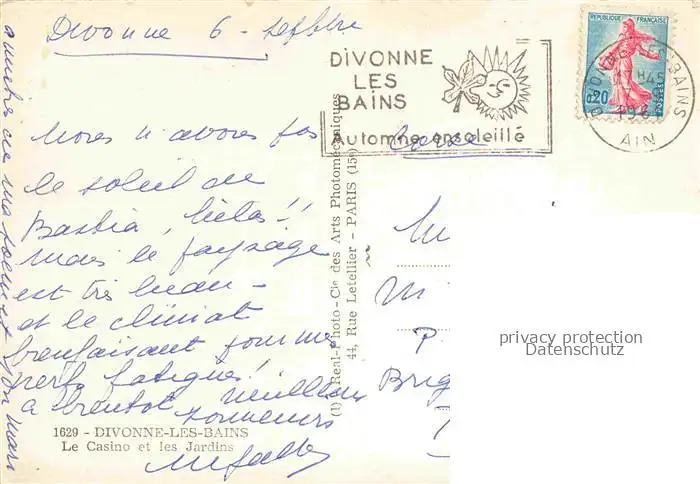 Divonne 6 - Septbre
DIVONNE
LES
BAINS
Automne ensoleillé
REPUBLIQUE FRANÇAISE
0,20
POSTES
DIVONNE-LES-BAINS
17 H45
AIN
Corse
Nous n'avons pas
le soleil de
Bastia, hélas!!
mais le paysage
est très beau -
et le climat
bienfaisant pour mes
nerfs fatigués!
à bientôt meilleurs
souvenirs
(1) Real-Photo - Cie des Arts Photomécaniques
44, Rue Letellier - PARIS (15e)
M
P.
Brig
privacy protection
Datenschutz
1629 - DIVONNE-LES-BAINS
Le Casino et les Jardins